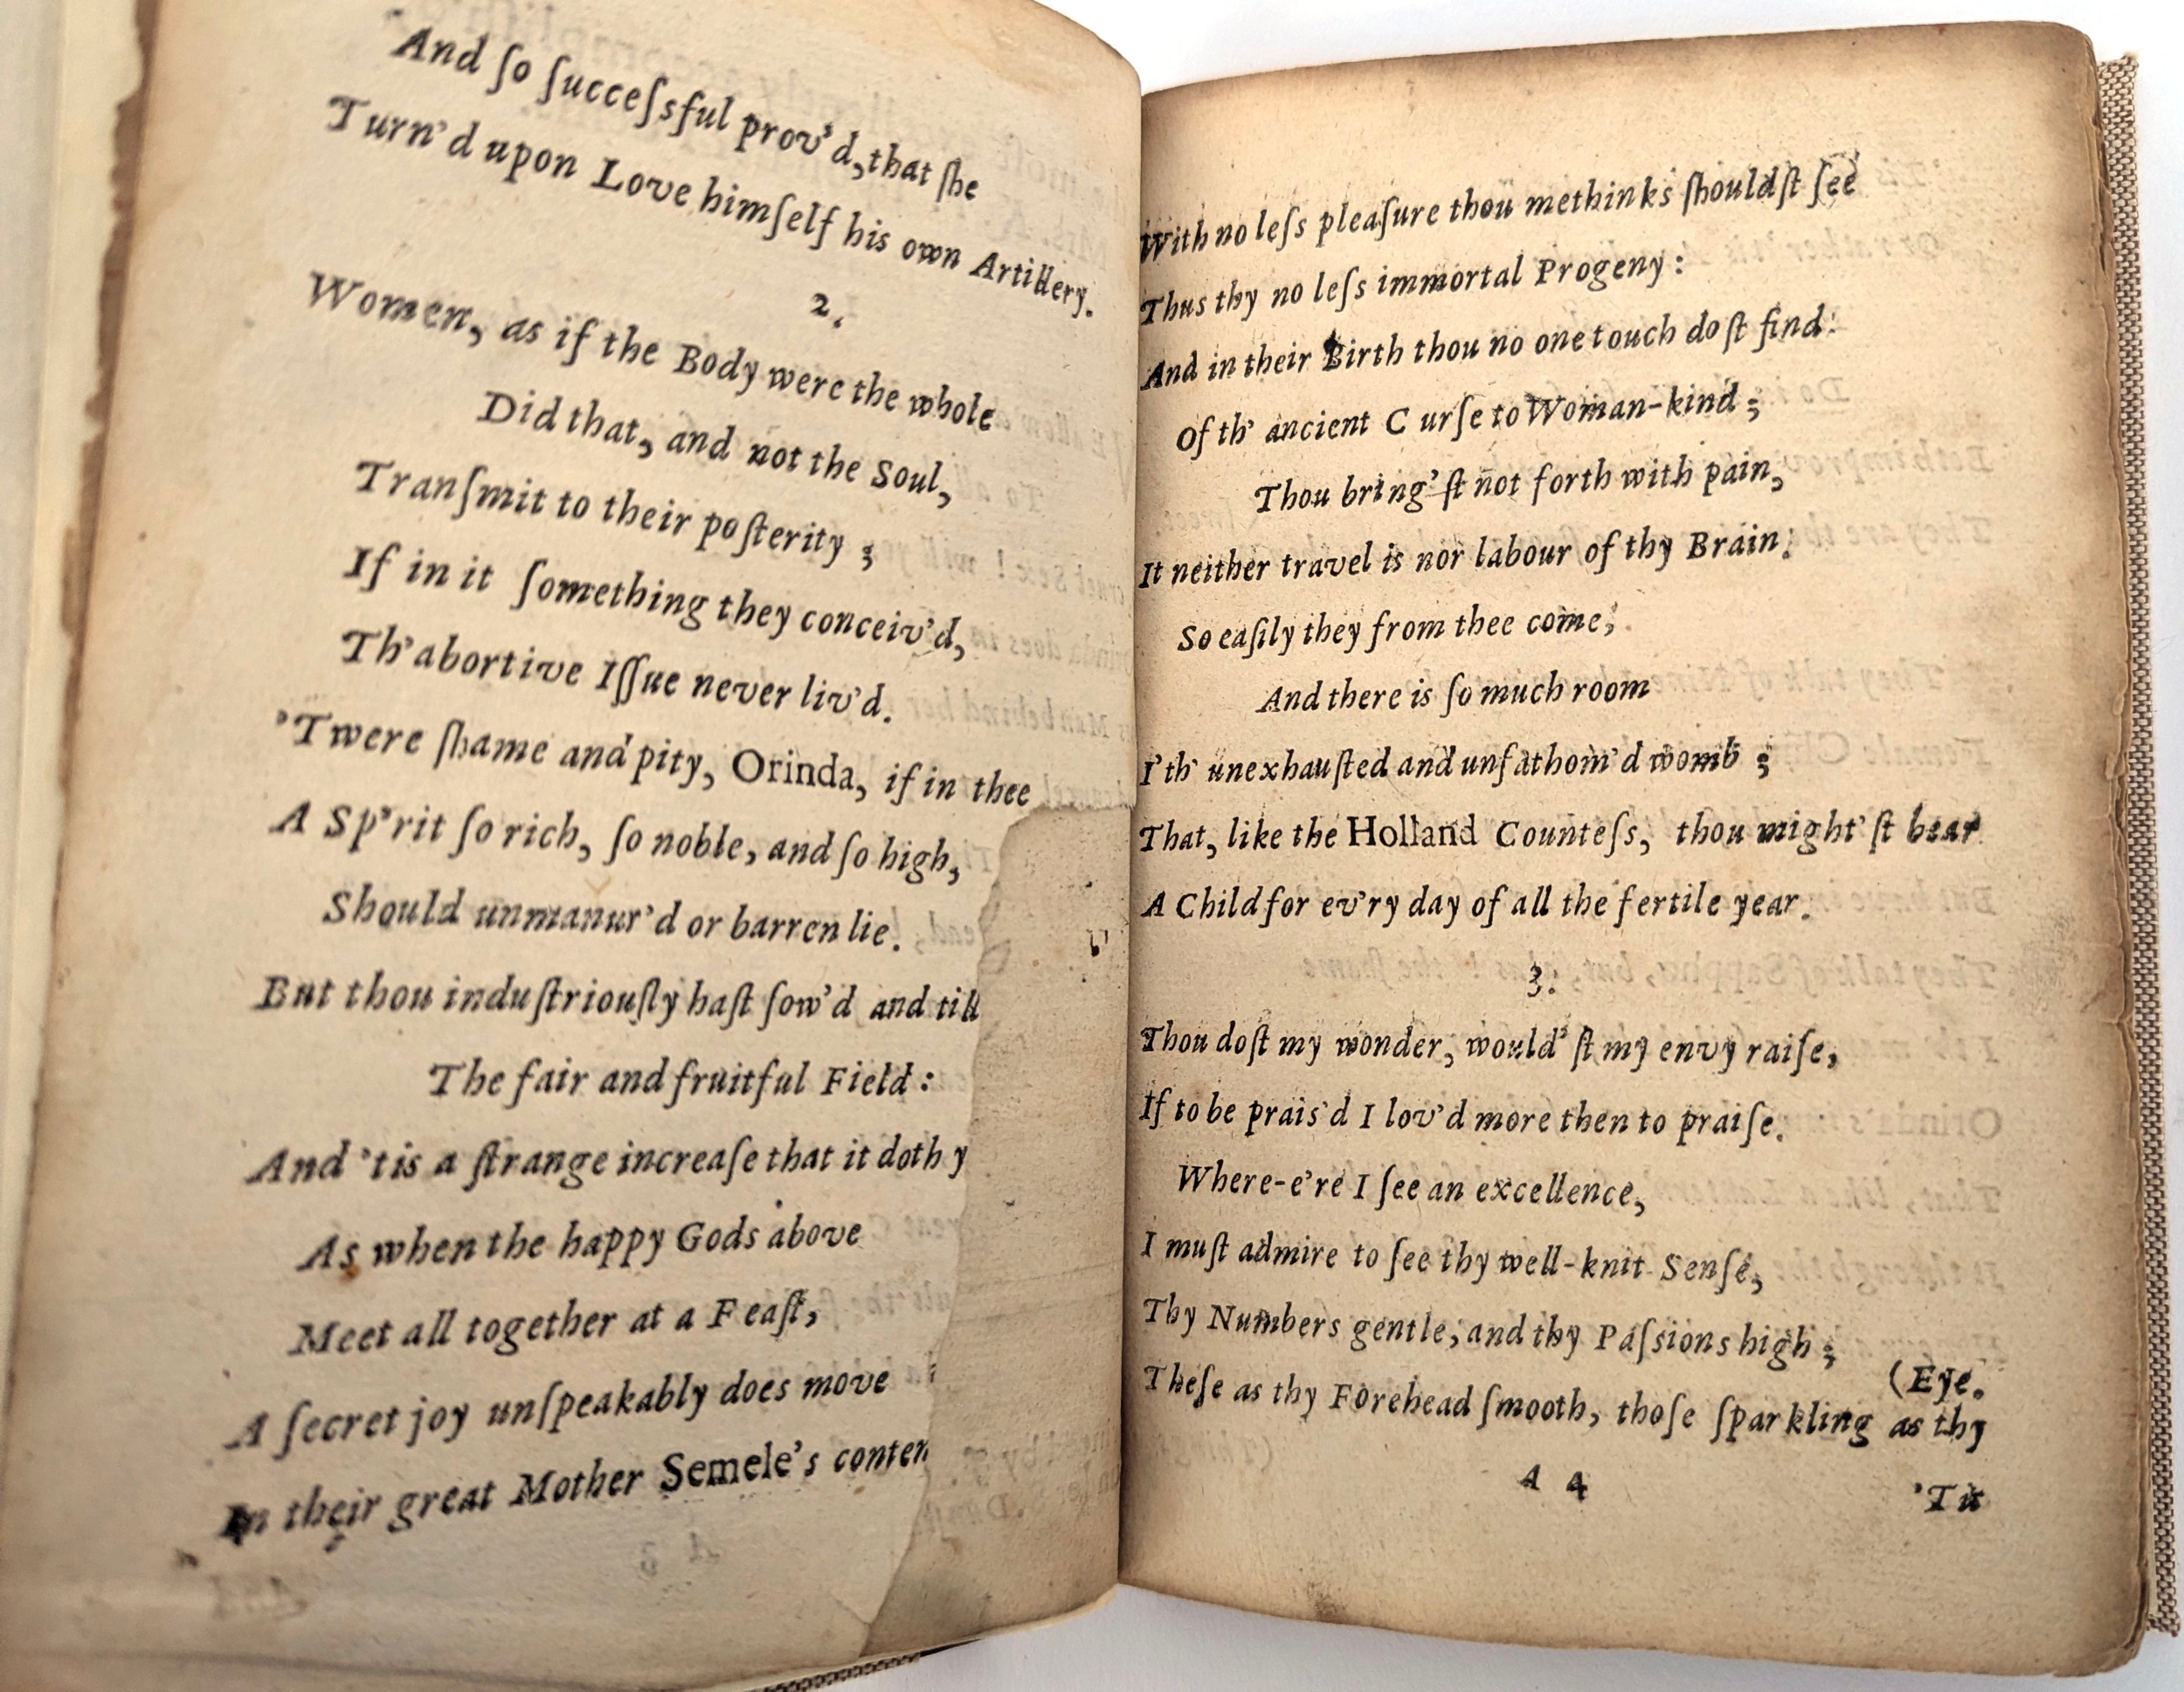 And ſo ſucceſsful prov'd, that ſhe
Turn'd upon Love himſelf his own Artillery.
2.
Women, as if the Body were the whole
Did that, and not the Soul,
Tranſmit to their poſterity ;
If in it ſomething they conceiv'd,
Th' abortive Iſſue never liv'd.
'Twere ſhame and pity, Orinda, if in thee
A Sp'rit ſo rich, ſo noble, and ſo high,
Should unmanur'd or barren lie.
But thou induſtriouſly haſt ſow'd and till
The fair and fruitful Field :
And 'tis a ſtrange increaſe that it doth y
As when the happy Gods above
Meet all together at a Feaſt,
A ſecret joy unſpeakably does move
In their great Mother Semele's conten
With no leſs pleaſure thou methinks ſhouldſt ſee
Thus thy no leſs immortal Progeny :
And in their Birth thou no one touch doſt find
Of th' ancient Curſe to Woman-kind ;
Thou bring'ſt not forth with pain,
It neither travel is nor labour of thy Brain.
So eaſily they from thee come,
And there is ſo much room
I'th' unexhauſted and unfathom'd womb ;
That, like the Holland Counteſs, thou might'ſt bear
A Child for ev'ry day of all the fertile year.
3.
Thou doſt my wonder, would'ſt my envy raiſe,
If to be prais'd I lov'd more then to praiſe.
Where-e're I ſee an excellence,
I muſt admire to ſee thy well-knit Senſe,
Thy Numbers gentle, and thy Paſsions high ;
(Eye.
Theſe as thy Forehead ſmooth, thoſe ſparkling as thy
A 4
'Tis